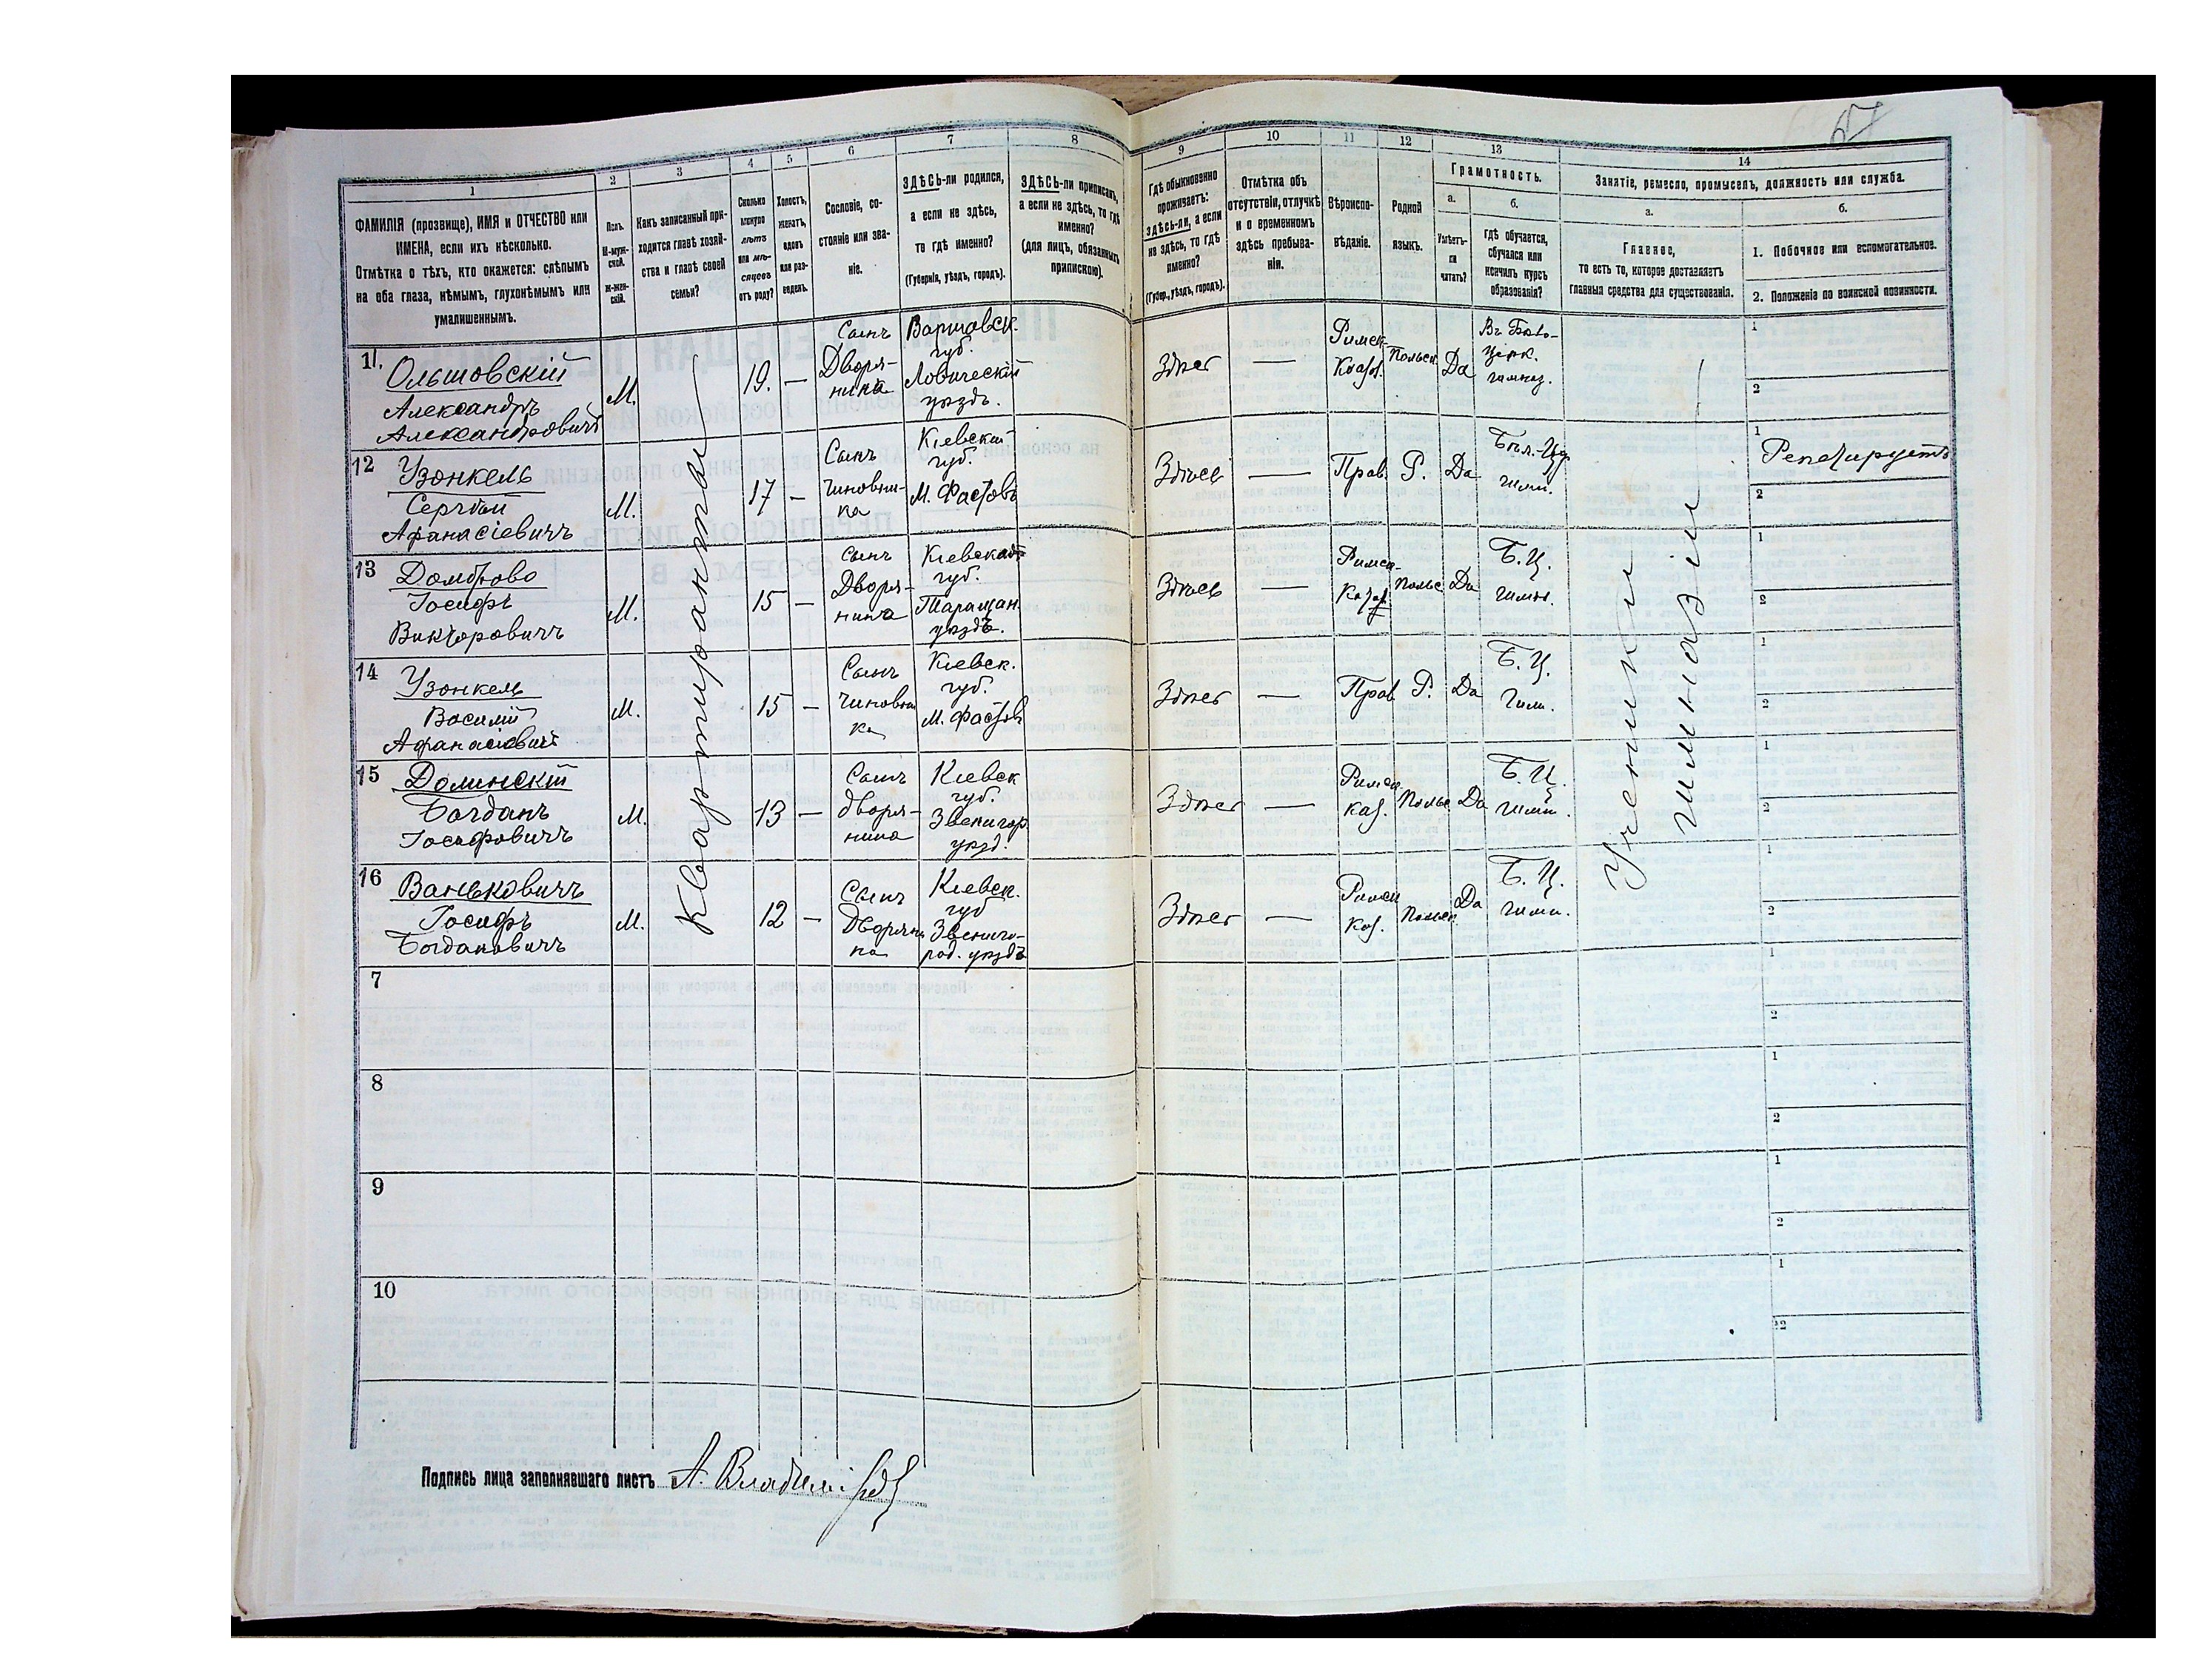 67
1 2 3 4 5 6 7 8 9 10 11 12 13 14
ФАМИЛІЯ (прозвище), ИМЯ и ОТЧЕСТВО или
ИМЕНА, если ихъ нѣсколько.
Отмѣтка о тѣхъ, кто окажется: слѣпымъ
на оба глаза, нѣмымъ, глухонѣмымъ или
умалишеннымъ.
Полъ.
М-муж-
ской.
Ж-жен-
скій.
Какъ записанный при-
ходится главѣ хозяй-
ства и главѣ своей
семьи?
Сколько
минуло
лѣтъ
или мѣ-
сяцевъ
отъ роду?
Холостъ,
женатъ,
вдовъ
или раз-
веденъ.
Сословіе, со-
стояніе или зва-
ніе.
ЗДѢСЬ-ли родился,
а если не здѣсь,
то гдѣ именно?
(Губернія, уѣздъ, городъ).
ЗДѢСЬ-ли приписанъ,
а если не здѣсь, то гдѣ
именно?
(для лицъ, обязанныхъ
припискою).
Гдѣ обыкновенно
проживаетъ:
здѣсь-ли, а если
не здѣсь, то гдѣ
именно?
(Губер., уѣздъ, городъ).
Отмѣтка объ
отсутствіи, отлучкѣ
и о временномъ
здѣсь пребыва-
ніи.
Вѣроиспо-
вѣданіе.
Родной
языкъ.
Грамотность.
а.
Умѣетъ-
ли
читать?
б.
Гдѣ обучается,
обучался или
кончилъ курсъ
образованія?
Занятіе, ремесло, промыселъ, должность или служба.
а.
Главное,
то есть то, которое доставляетъ
главныя средства для существованія.
б.
1. Побочное или вспомогательное.
2. Положеніе по воинской повинности.
11. Ольшовскій
Александръ
Александровичъ
М. 19. —
Сынъ
Дворя-
нина
Варшавск.
губ.
Ловическій
уѣздъ.
Здѣсь — Римск.
Катол. Польск. Да
Въ Бѣло-
церк.
гимназ.
1
2
12 Узонкель
Сергѣй
Афанасіевичъ
М. 17 —
Сынъ
чиновни-
ка
Кіевской
губ.
М. Фастовъ
Здѣсь — Прав. Р. Да
Бѣл.-Цер
гимн.
1
Репетируетъ
2
13 Домброво
Іосифъ
Викторовичъ
М. 15 —
Сынъ
Дворя-
нина
Кіевской
губ.
Таращан.
уѣздъ.
Здѣсь — Римск.
Катол. Польс Да
Б. Ц.
гимн.
1
2
14 Узонкель
Василій
Афанасіевичъ
М. 15 —
Сынъ
Чиновни
ка
Кіевск.
губ.
М. Фастов
Здѣсь — Прав Р. Да
Б. Ц.
Гим.
1
2
15 Долинскій
Богданъ
Іосифовичъ
М. 13 —
Сынъ
дворя-
нина
Кіевск
губ.
Звенигор.
уѣзд.
Здѣсь — Римск.
кат. Польс. Да
Б. Ц.
гимн.
1
2
16 Ваньковичъ
Іосифъ
Богдановичъ
М. 12 —
Сынъ
Дворяни
на
Кіевск.
губ
Звениго-
род. уѣздъ
Здѣсь — Римск
кат. Польск. Да
Б. Ц.
гимн.
1
2
Квартиранты
Ученики
гимназіи
7
1
2
8
1
2
9
1
2
10
1
2
Подпись лица заполнявшаго листъ